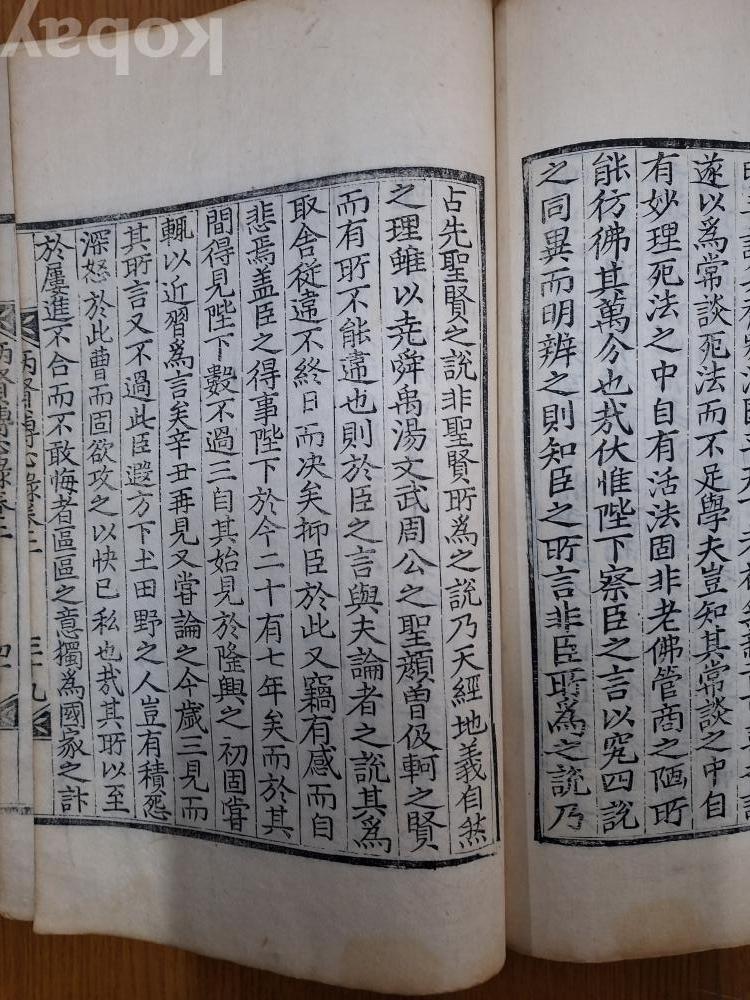 遂以爲常談死法而不足學夫豈知其常談之中自
有妙理死法之中自有活法固非老佛管商之陋所
能彷彿其萬分也哉伏惟陛下察臣之言以究四說
之同異而明辨之則知臣之所言非臣所爲之說乃
古先聖賢之說非聖賢所爲之說乃天經地義自然
之理雖以堯舜禹湯文武周公之聖顔曾伋軻之賢
而有所不能違也則於臣之言與夫論者之說其爲
取舍從違不終日而决矣抑臣於此又竊有感而自
悲焉盖臣之得事陛下於今二十有七年矣而於其
間得見陛下數不過三自其始見於隆興之初固嘗
輒以近習爲言矣辛丑再見又嘗論之今歲三見而
其所言又不過此臣遐方下土田野之人豈有積怨
深怒於此曹而固欲攻之以快已私也哉其所以至
於屢進不合而不敢悔者區區之意獨爲國家之計
兩賢傳心錄卷二 三十九
kobay